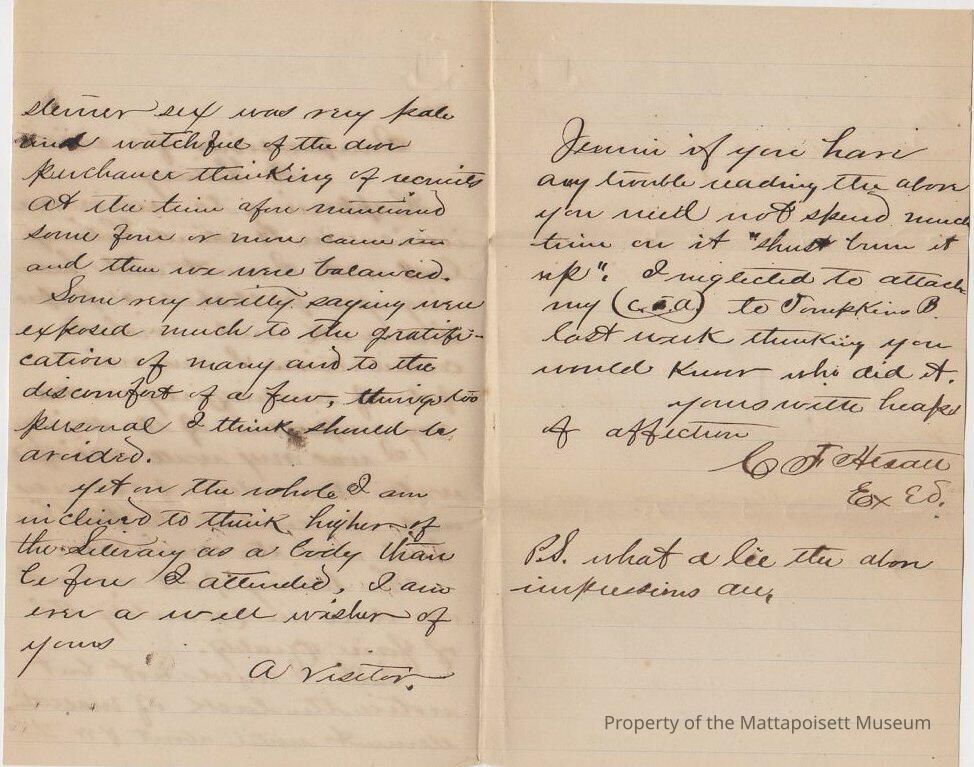 sterner sex was very pale
and watchful of the door
perchance thinking of recruits
At the time afore mentioned
some four or more came in
and then we were balanced.
Some very witty saying were
exposed much to the gratifi-
cation of many and to the
discomfort of a few, things too
personal I think should be
avoided.
Yet on the whole I am
inclined to think higher of
the Literary as a body than
before I attended, I am
ever a well wisher of
yours
A Visitor.
Jennie if you have
any trouble reading the above
you need not spend much
time on it "shust burn it
up". I neglected to attach
my (c.t.a) to Tompkins P.
last week thinking you
would know who did it.
yours with heaps
of affection
C F
Ex Ed.
P.S. what a lie the above
impressions are,
Property of the Mattapoisett Museum